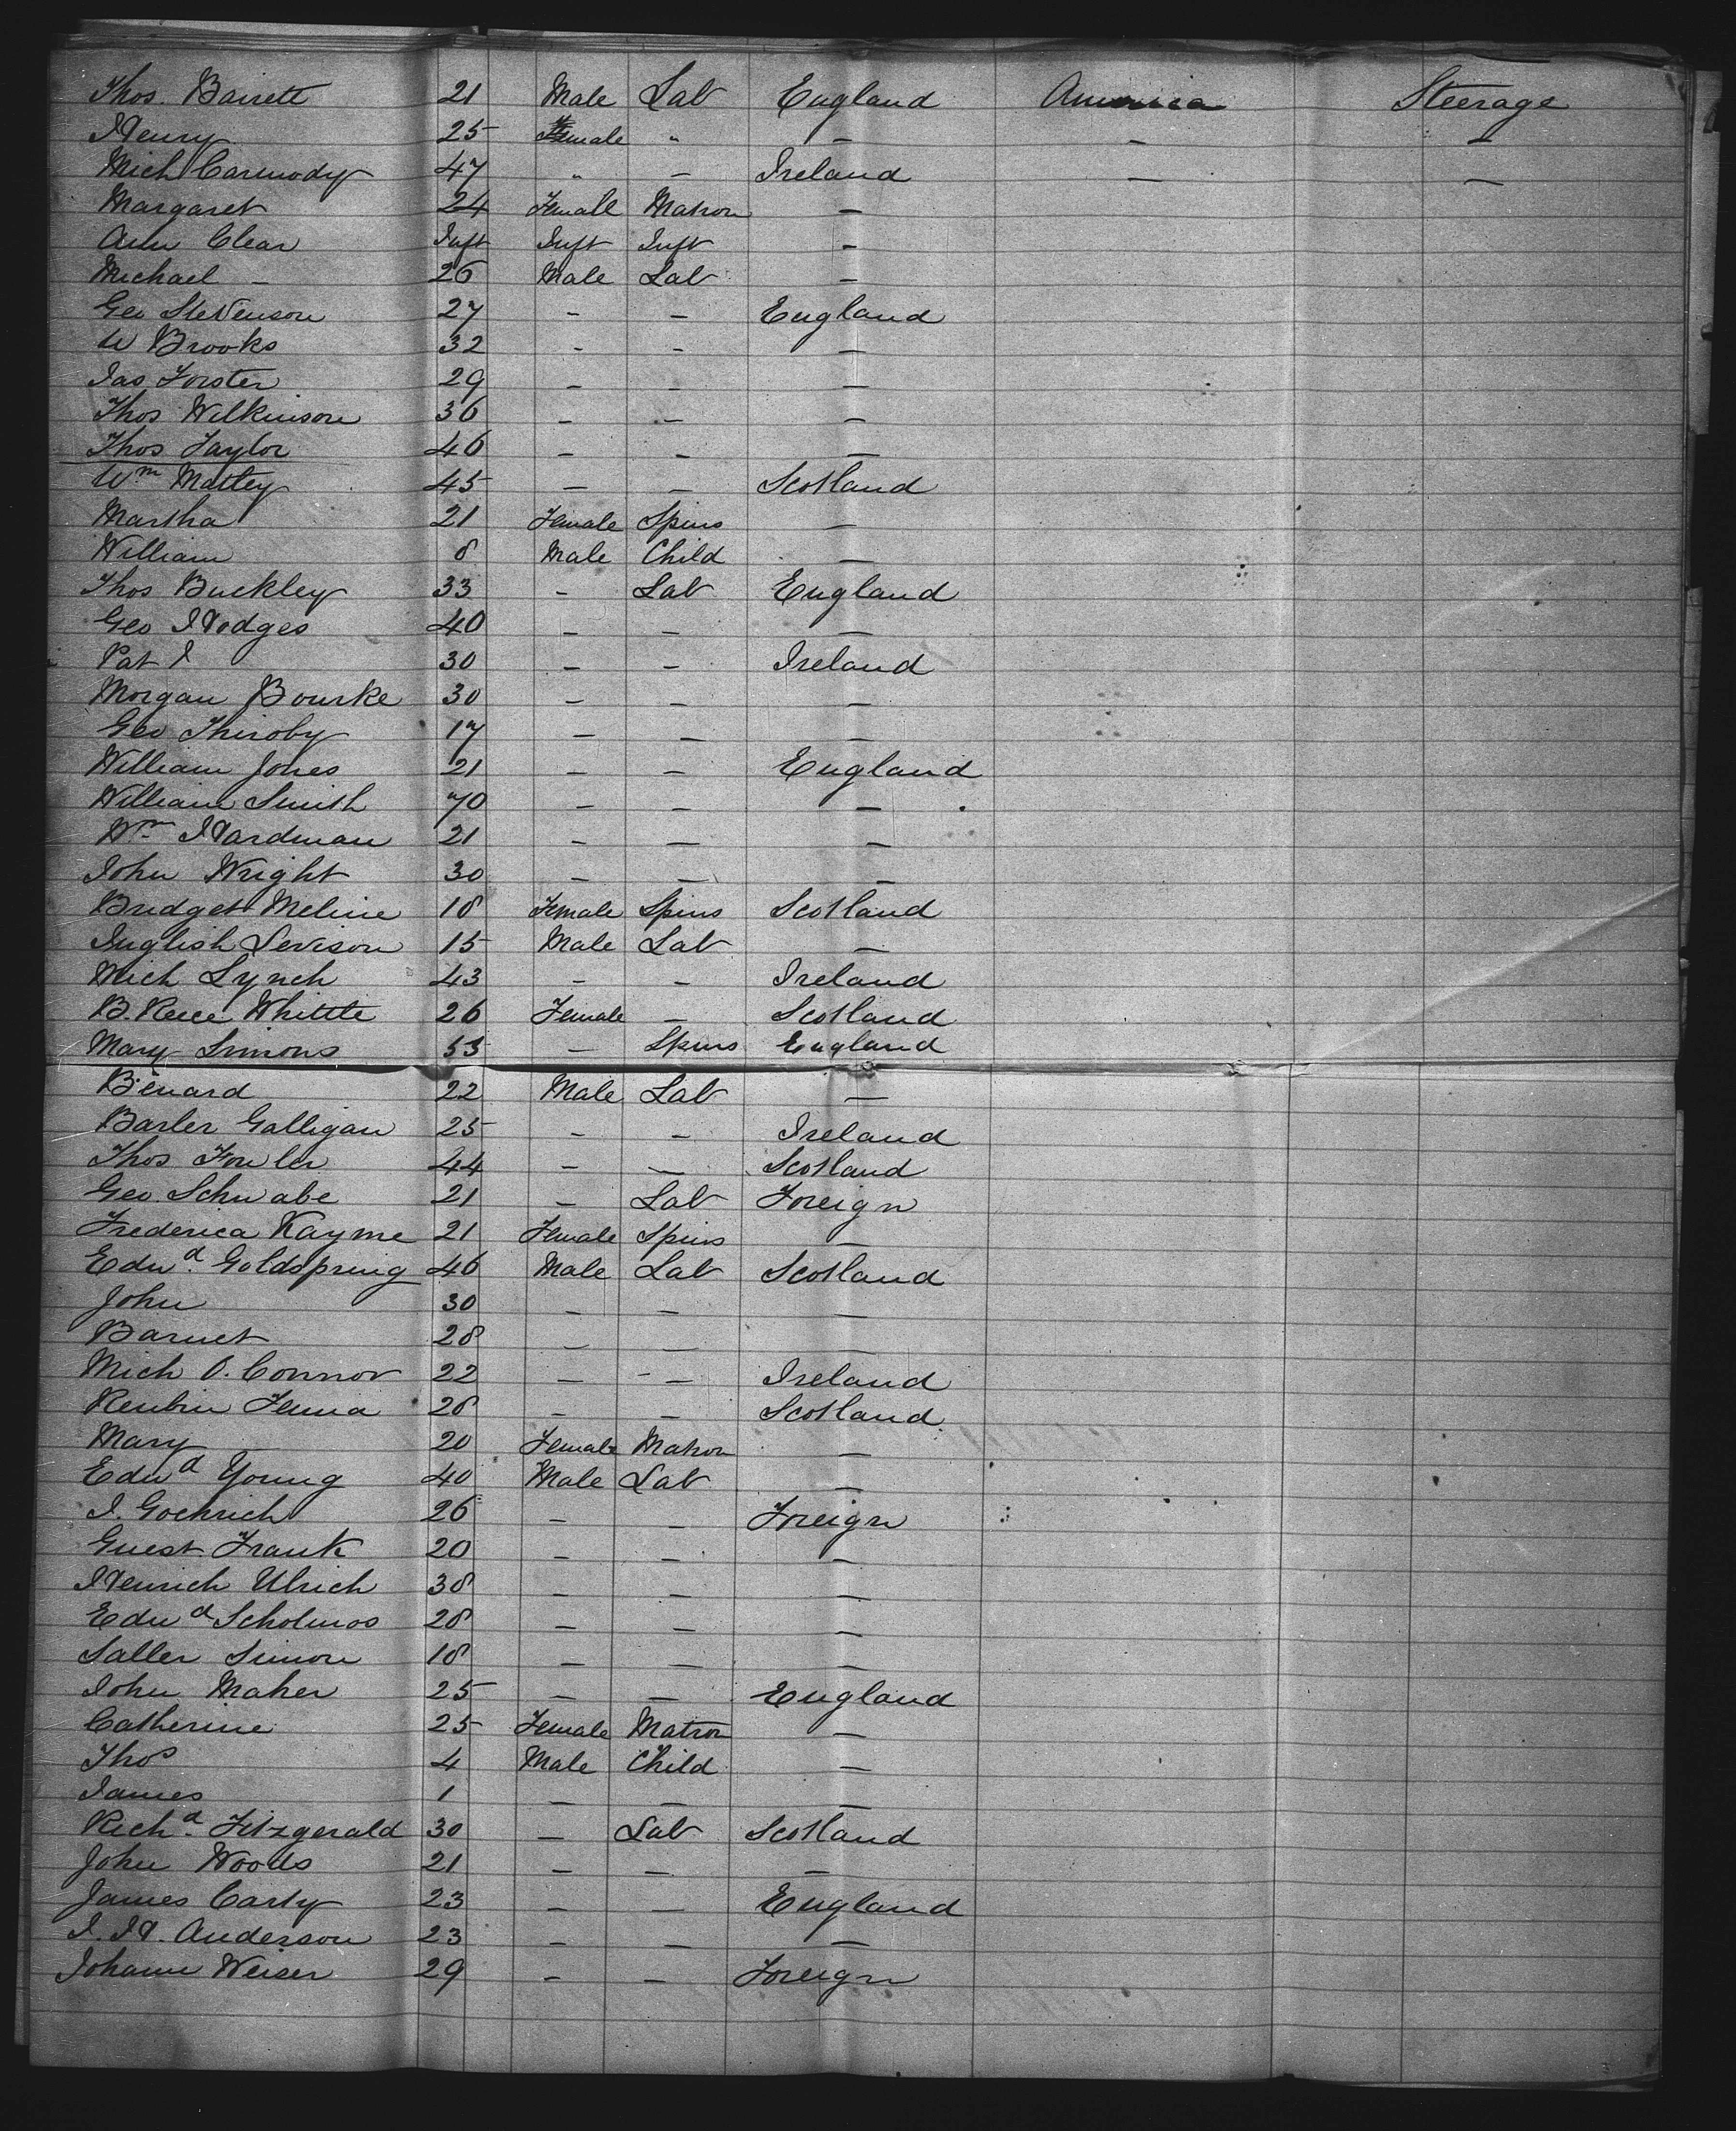 Thos. Barrett 21 Male Lab England America Steerage
Henry 25 Female " — — —
Mich Carmody 47 " — Ireland — —
Margaret 24 Female Matron —
Ann Clear Inft Inft Inft —
Michael — 26 Male Lab —
Geo Stevenson 27 - - England
W Brooks 32 - - —
Jas Forster 29 — - —
Thos Wilkinson 36 — — —
Thos Taylor 46 — - —
Wm Mattey 45 — — Scotland
Martha 21 Female Spins —
William 8 Male Child —
Thos Buckley 33 - Lab England
Geo Hodges 40 — — —
Pat 30 — — Ireland
Morgan Bourke 30 — — —
Geo Thiroby 17 — — —
William Jones 21 — — England
William Smith 70 — — —
Wm Hardman 21 — — —
John Wright 30 — — —
Bridget Meline 18 Female Spins Scotland
English Levison 15 Male Lab —
Mich Lynch 43 — - Ireland
B. Reece Whittle 26 Female — Scotland
Mary Simons 53 — Spins England
Benard 22 Male Lab —
Barler Galligan 25 — — Ireland
Thos Fowler 44 — — Scotland
Geo. Schwabe 21 — Lab Foreign
Frederica Kayme 21 Female Spins —
Edwd. Goldspring 46 Male Lab Scotland
John 30 — — —
Barnet 28 — — —
Mich O. Connor 22 — — Ireland
Reubin Fenna 28 — — Scotland
Mary 20 Female Matron —
Edwd Young 40 Male Lab —
I. Gochrich 26 — — Foreign
Guest Frank 20 — — —
Henrich Ulrich 38 — — —
Edwd Scholmos 28 — — —
Saller Simon 18 — — —
John Maher 25 — — England
Catherine 25 Female Matron —
Thos 4 Male Child —
James 1 — — —
Richd. Fitzgerald 30 — Lab Scotland
John Woods 21 — — —
James Carty 23 — — England
I. H. Anderson 23 — — —
Johann Weiser 29 — — Foreign